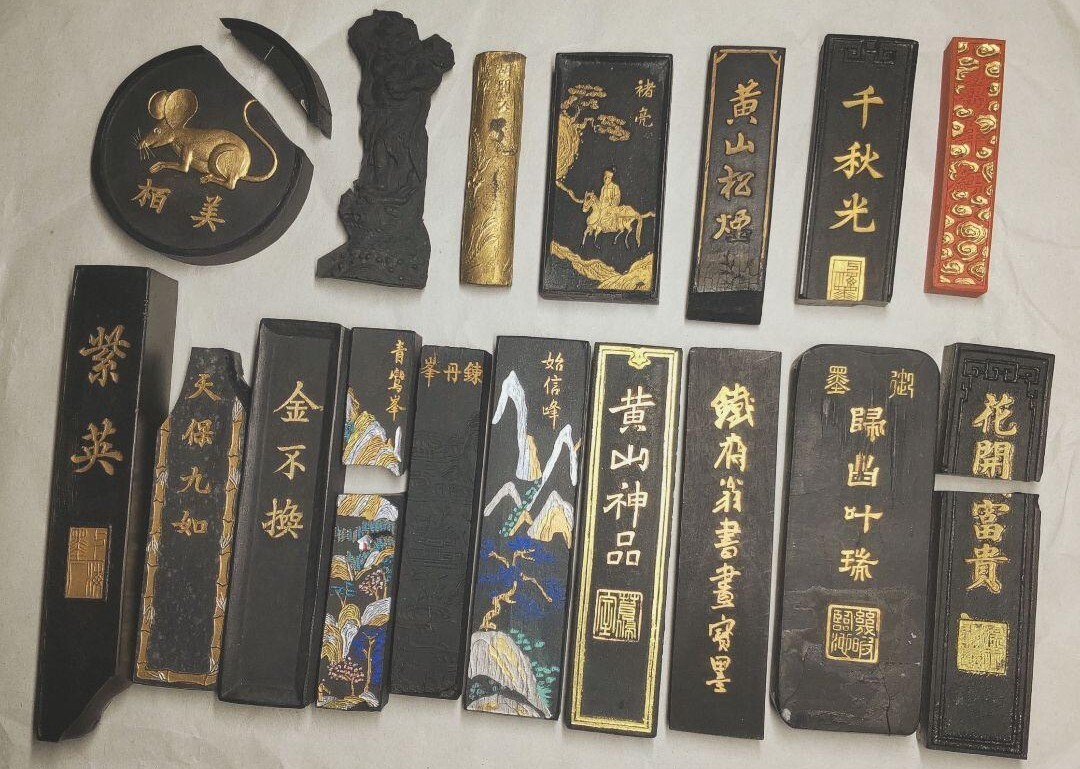 柏美
褚亮
黄山松煙
千秋光
紫英
天保九如
金不換
青鸞峯
鍊丹峯
始信峰
黄山神品
鐵斋翁書畫寳墨
御墨
歸昌叶瑞
花開富貴